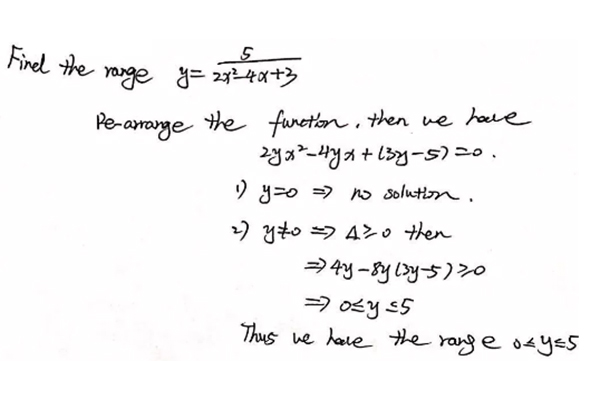 Find the range y = 5/(2x²-4x+3)
Re-arrange the function, then we have
2yx²-4yx+(3y-5)=0.
1) y=0 ⇒ no solution.
2) y≠0 ⇒ Δ≥0 then
⇒ 4y-8y(3y-5)≥0
⇒ 0≤y≤5
Thus we have the range 0≤y≤5